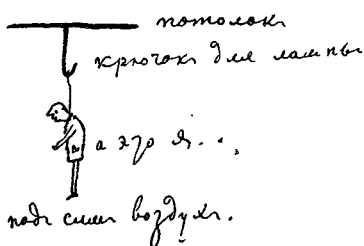 потолокъ
крючокъ для лампы
а это я...
подъ симъ воздухъ.